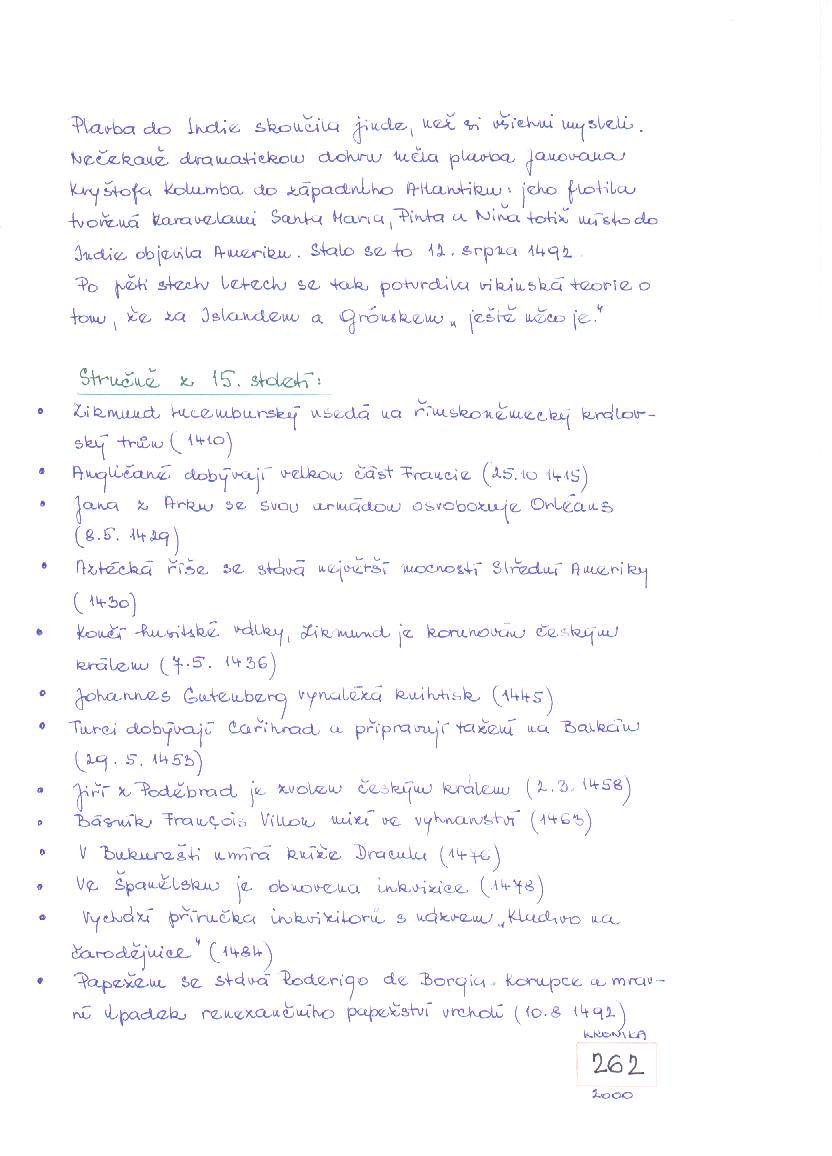 Plavba do Indie skončila jinde, než si všichni mysleli.
Nečekaně dramatickou dohru měla plavba Janovana
Kryštofa Kolumba do západního Atlantiku: jeho flotila
tvořená karavelami Santa Maria, Pinta a Niňa totiž místo do
Indie objevila Ameriku. Stalo se to 12. srpna 1492.
Po pěti stech letech se tak potvrdila vikinská teorie o
tom, že za Islandem a Grónskem „ještě něco je."
Stručně z 15. století:
• Zikmund Lucemburský usedá na římskoněmecký králov-
ský trůn (1410)
• Angličané dobývají velkou část Francie (25.10 1415)
• Jana z Arku se svou armádou osvobozuje Orléans
(8.5. 1429)
• Aztécká říše se stává největší mocností Střední Ameriky
(1430)
• Končí husitské války, Zikmund je korunován českým
králem (7.5. 1436)
• Johannes Gutenberg vynalézá knihtisk (1445)
• Turci dobývají Cařihrad a připravují tažení na Balkán
(29. 5. 1453)
• Jiří z Poděbrad je zvolen českým králem (2.3. 1458)
• Básník François Villon mizí ve vyhnanství (1463)
• V Bukurešti umírá kníže Dracula (1476)
• Ve Španělsku je obnovena inkvizice (1478)
• Vychází příručka inkvizitorů s názvem „Kladivo na
čarodějnice" (1484)
• Papežem se stává Roderigo de Borgia. Korupce a mrav-
ní úpadek renezančního papežství vrcholí (10.8 1492)
KRONIKA
262
2000